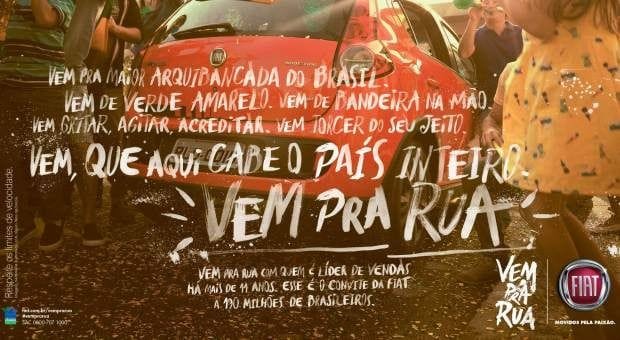 VEM PRA MAIOR ARQUIBANCADA DO BRASIL.
VEM DE VERDE AMARELO. VEM DE BANDEIRA NA MÃO.
VEM GRITAR, AGITAR, ACREDITAR. VEM TORCER DO SEU JEITO.
VEM, QUE AQUI CABE O PAÍS INTEIRO.
VEM PRA RUA
VEM PRA RUA COM QUEM É LÍDER DE VENDAS
HÁ MAIS DE 11 ANOS. ESSE É O CONVITE DA FIAT
A 190 MILHÕES DE BRASILEIROS.
VEM
PRA
RUA
FIAT
MOVIDOS PELA PAIXÃO.
Respeite os limites de velocidade.
fiat.com.br/vemprarua
#vemprarua
SAC 0800 707 1000